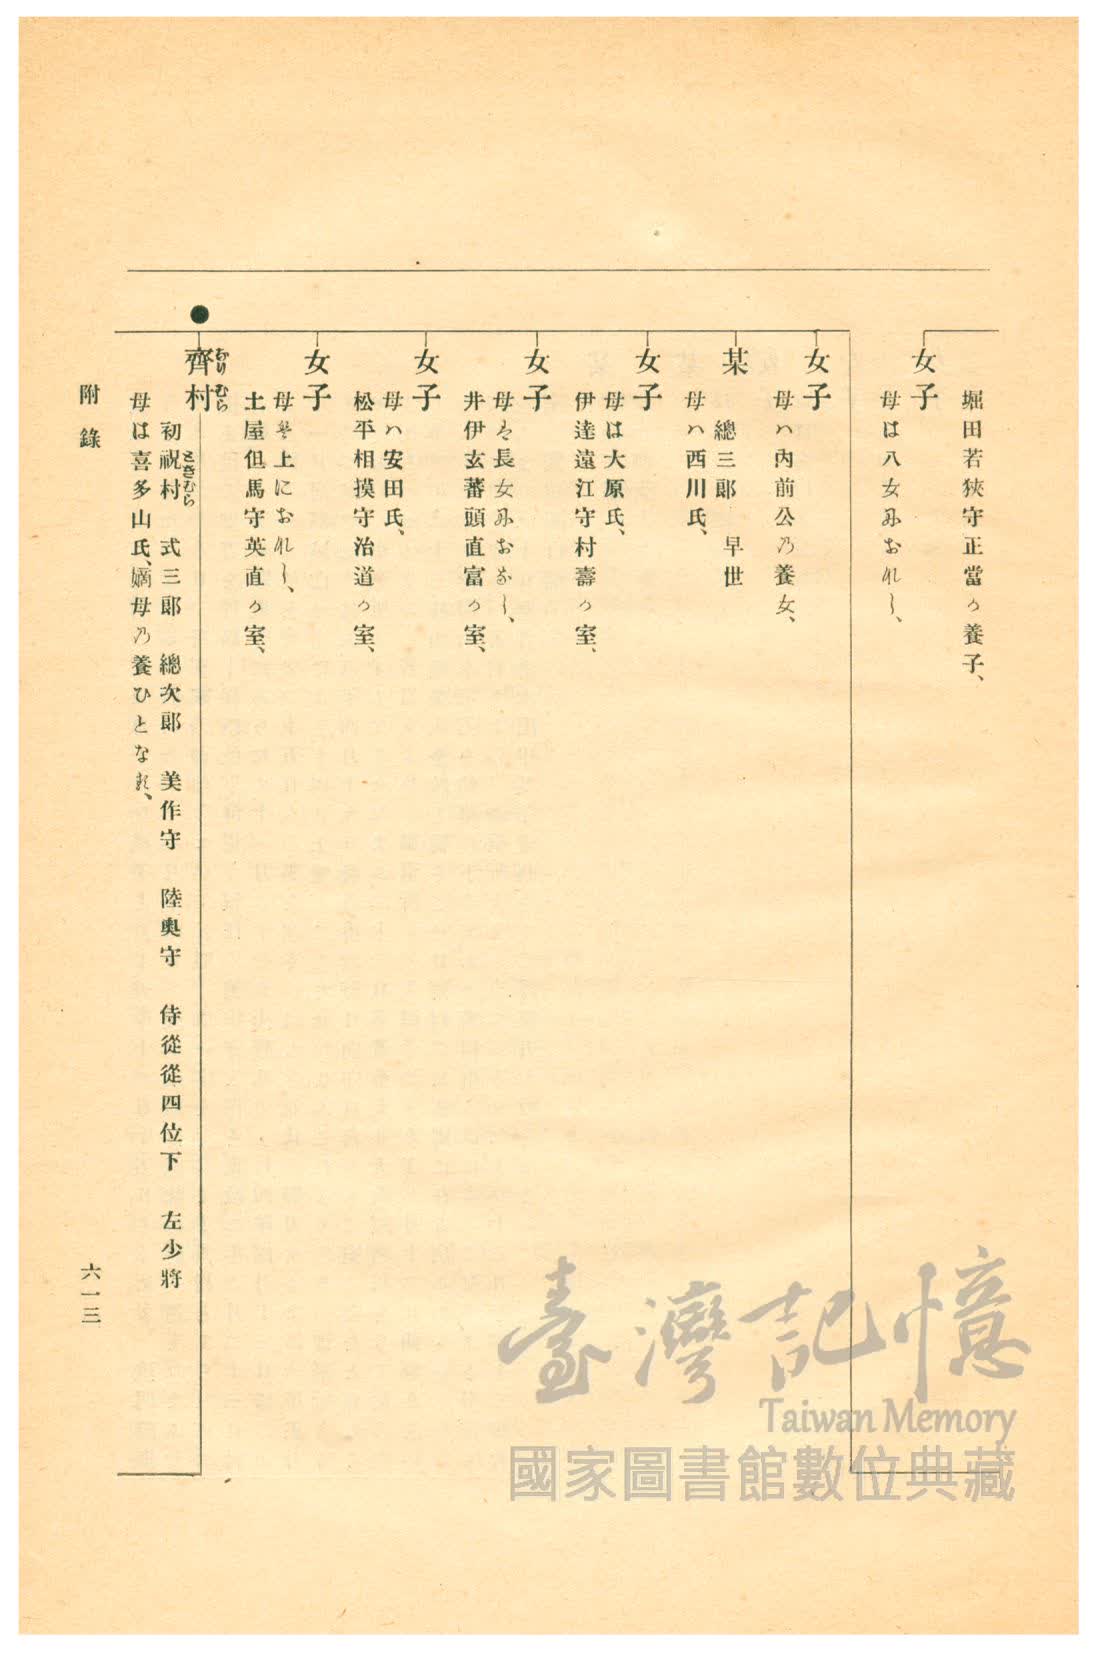 堀田若狹守正當の養子、
女子
母は八女におなし、
女子
母ハ内前公乃養女、
某
總三郞　早世
母ハ西川氏、
女子
母は大原氏、
伊達遠江守村壽の室、
女子
母は長女におなし、
井伊玄蕃頭直富の室、
女子
母ハ安田氏、
松平相摸守治道の室、
女子
母は上におなし、
土屋但馬守英直の室、
●
齊村
なりむら
初祝村　式三郞　總次郞　美作守　陸奧守　侍從從四位下　左少將
ときむら
母は喜多山氏、嫡母乃養ひとなる、
附錄
六一三
臺灣記憶
Taiwan Memory
國家圖書館數位典藏